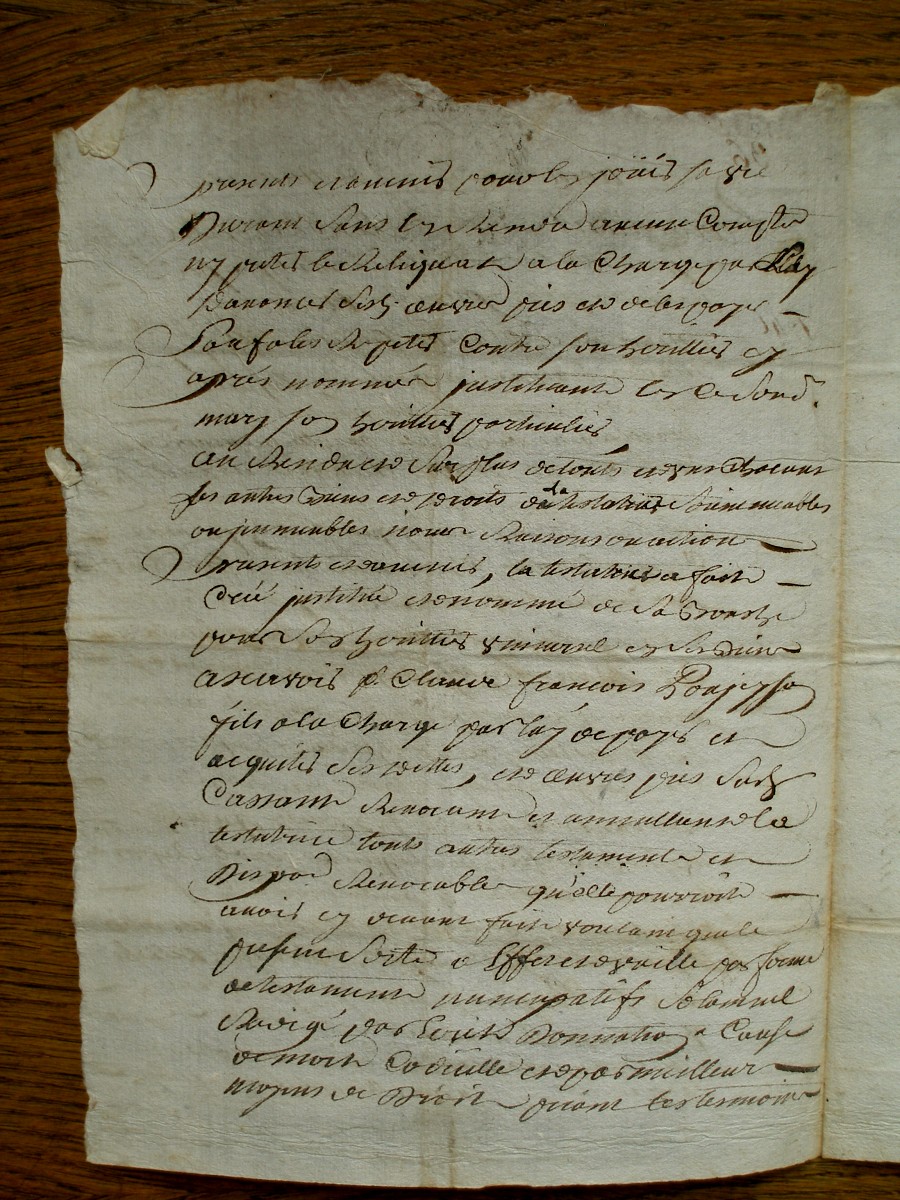 presents et avenir pour les joüir sa vie
Durant sans les Rendre aucun Compte
ny preter le Reliquat a la Charge par luy
Danoncer ses œuvres pies et de les payer
Sans les Repeter contre son heritier cy
apres nommée justituant led. Sond.
mary son heritier particulier
au Residu et de surplus de touts et un chacuns
ses autres Biens et droits de la testatrice soit meubles
ou jmmeubles noms Raisons ou actions
presents et avenir, la testatrice a fait
Créé justitué et nommé de sa Bouche
pour son heritier universel en ses Biens
a scavoir Sr Claude françois Poujesse
fils a la Charge par luy de payer et
acquiter ses dettes, et œuvres pies susd.
Cassant Revocant et annullant lad.
testatrice touts autres testaments et
Dispoon Revocables qu'elle pourroit
avoir cy devant fait voulant que le
present sorte a Effet et vaille par forme
de testament nuncupatif solemnel
Redigé par Ecrit Donnation a Cause
de mort Codicille et par meilleur
moyens de Droit priant les tesmoins